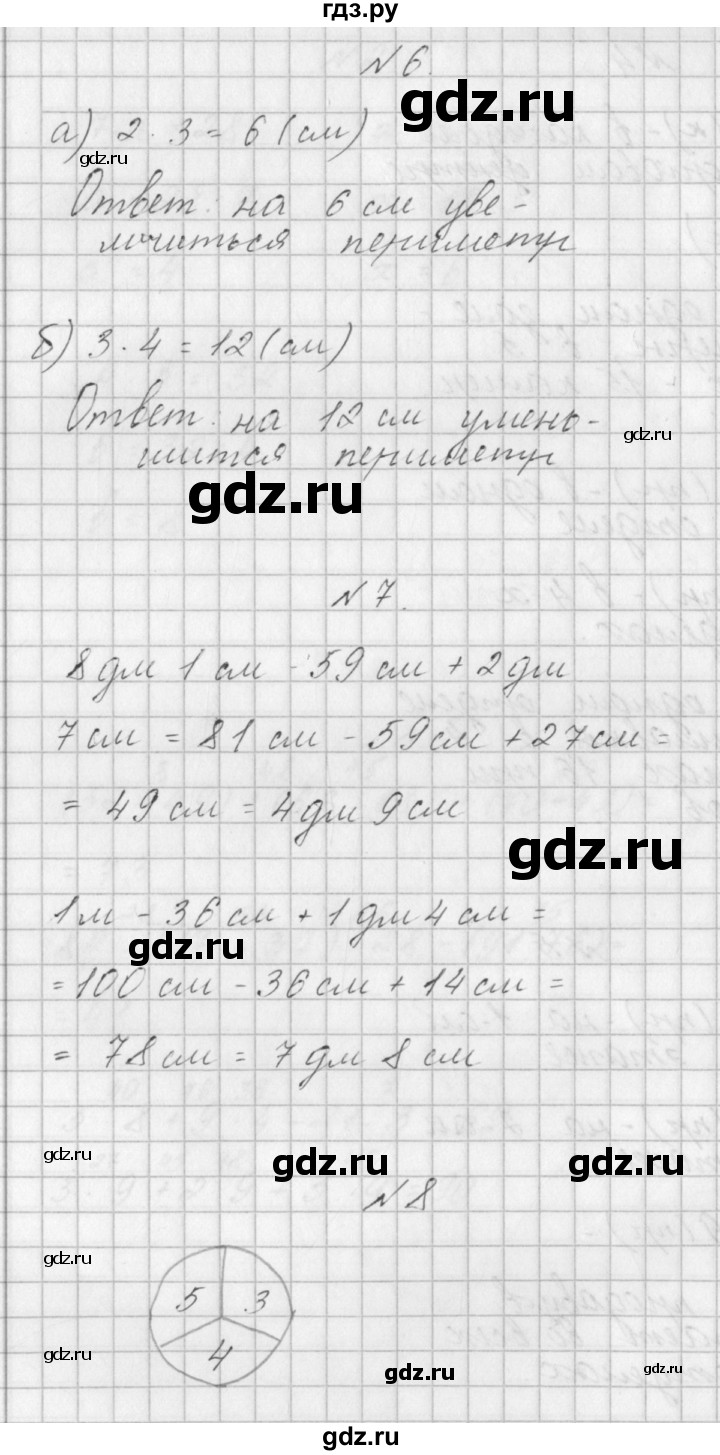 гдз.ру
№6.
gdz.ru
а) 2 · 3 = 6 (см)
gdz.ru
Ответ: на 6 см уве-
личиться периметр
б) 3 · 4 = 12 (см)
Ответ: на 12 см умень-
gdz.ru
шится периметр
gdz.ru
№7.
8 дм 1 см - 59 см + 2 дм
7 см = 81 см - 59 см + 27 см =
= 49 см = 4 дм 9 см
gdz.ru
1 м - 36 см + 1 дм 4 см =
gdz.ru
= 100 см - 36 см + 14 см =
= 78 см = 7 дм 8 см
gdz.ru gdz.ru gdz.ru
№8
gdz.ru
5 3
4
gdz.ru gdz.ru gdz.ru
gdz.ru